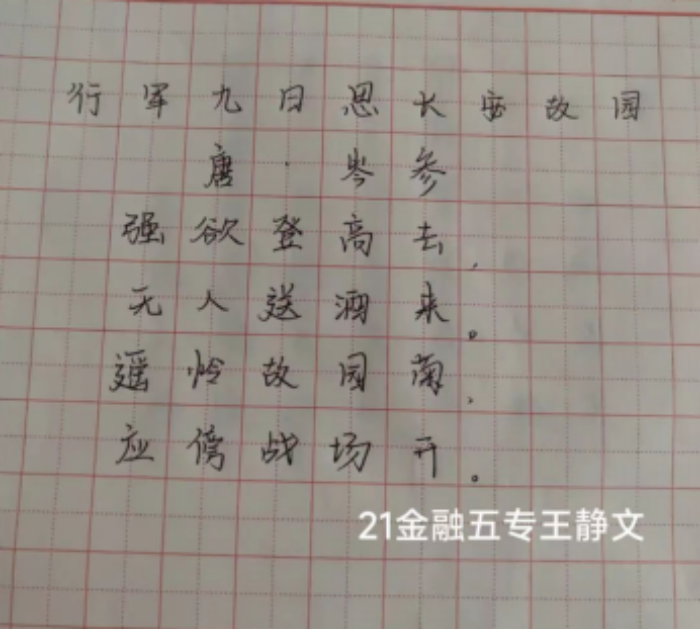 行军九日思长安故园
唐·岑参
强欲登高去,
无人送酒来。
遥怜故园菊,
应傍战场开。
21金融五专王静文